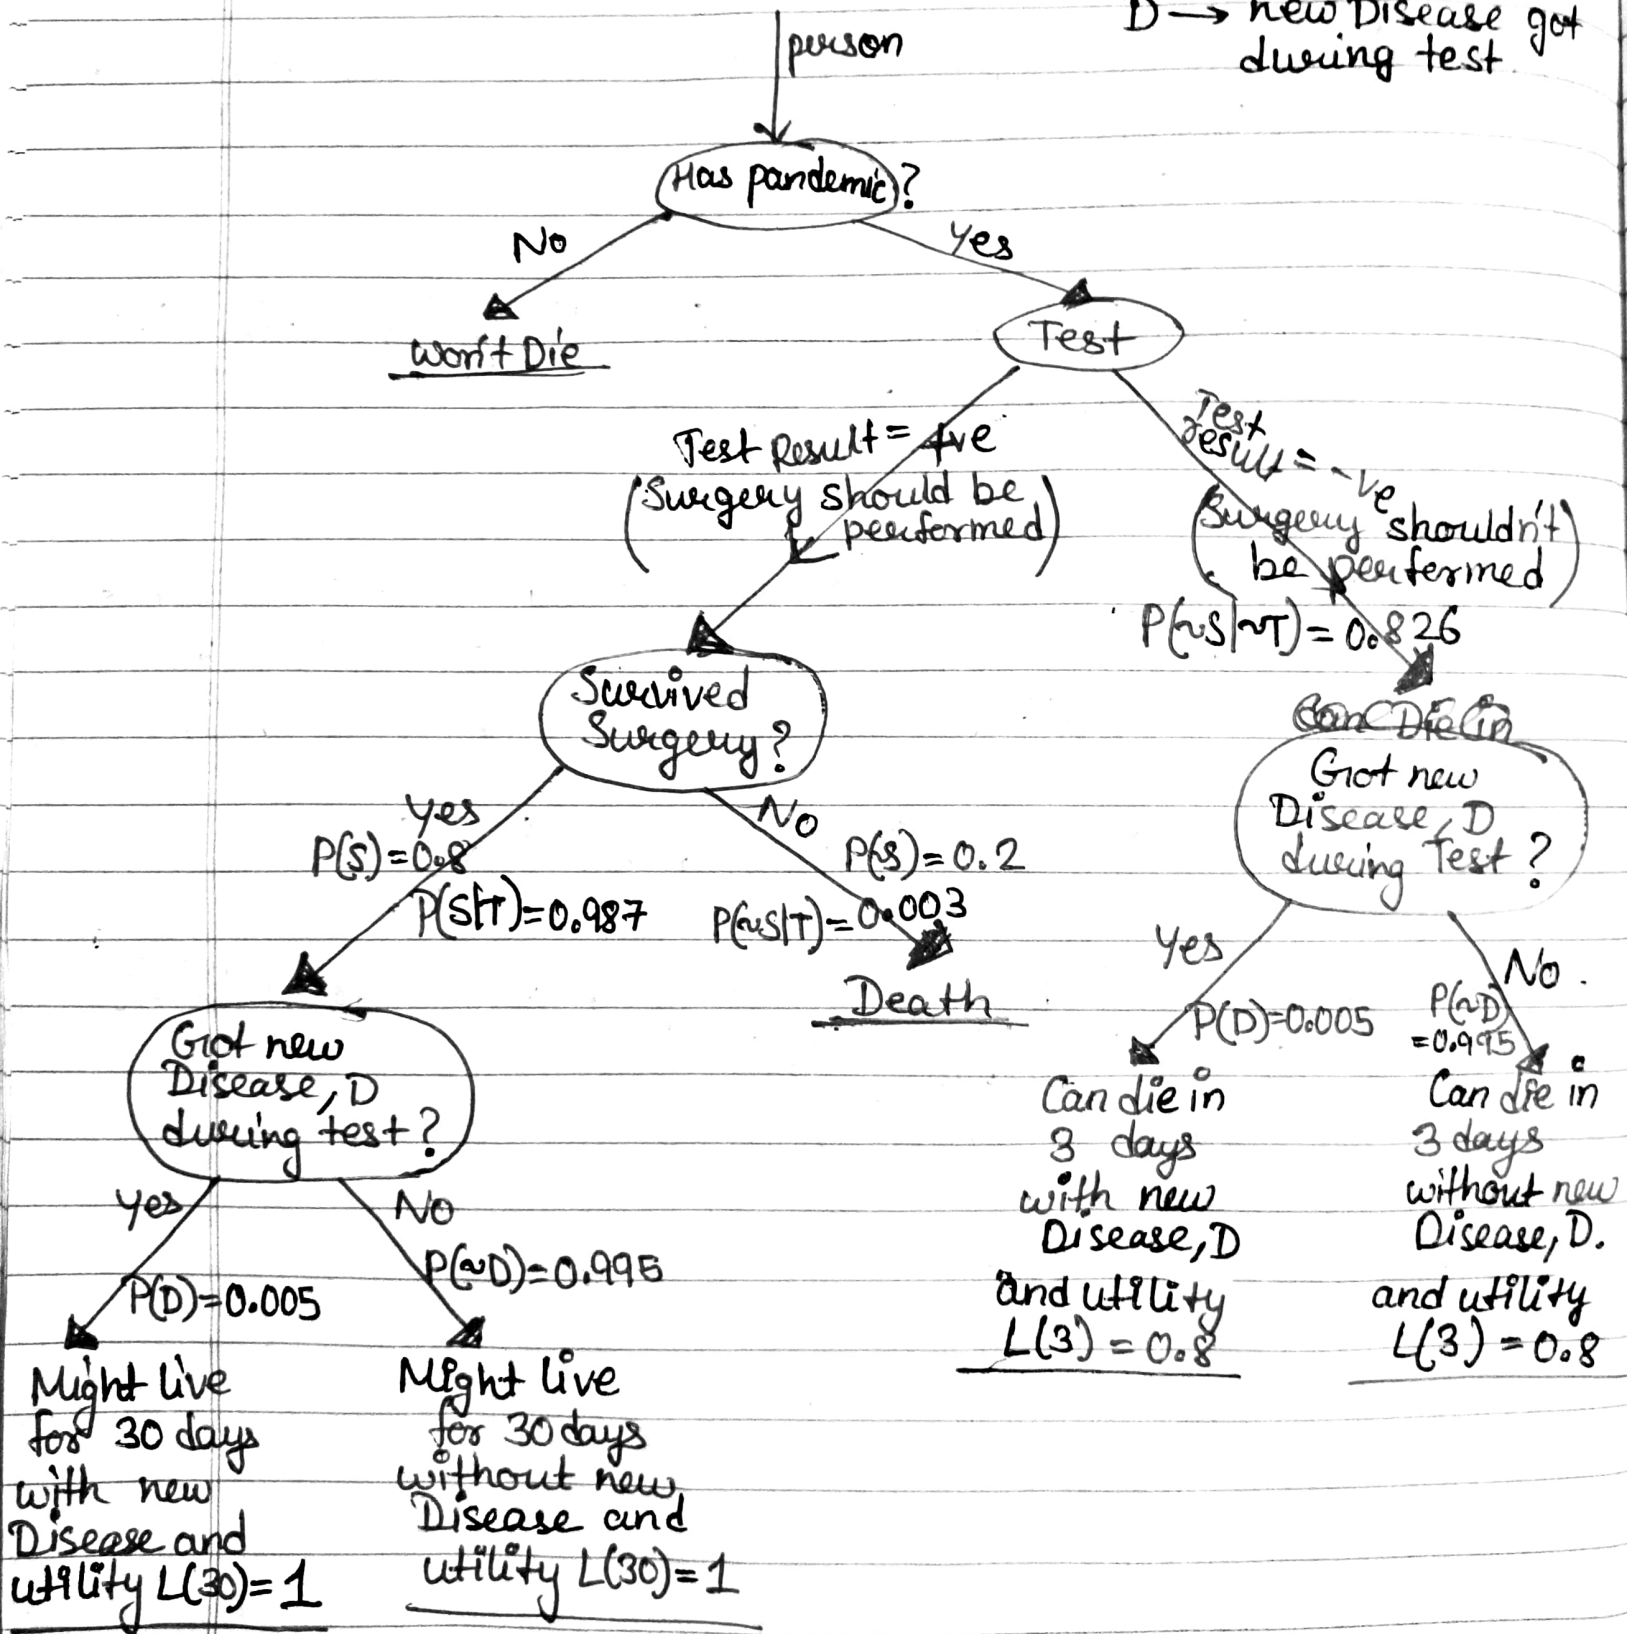 D → new Disease got
during test
person
Has pandemic?
No
Yes
Won't Die
Test
Test Result = +ve
(Surgery should be
performed)
Test
result = -ve
(Surgery shouldn't
be performed)
P(~S|~T) = 0.826
Survived
Surgery?
Can Die in
Got new
Disease, D
during Test?
Yes
P(S)=0.8
P(S|T)=0.987
No
P(~S)=0.2
P(~S|T)=0.003
Death
Yes
P(D)=0.005
No
P(~D)
=0.995
Got new
Disease, D
during test?
Can die in
3 days
with new
Disease, D
and utility
L(3) = 0.8
Can die in
3 days
without new
Disease, D.
and utility
L(3) = 0.8
Yes
P(D)=0.005
No
P(~D)=0.995
Might live
for 30 days
with new
Disease and
utility L(30)=1
Might live
for 30 days
without new
Disease and
utility L(30)=1